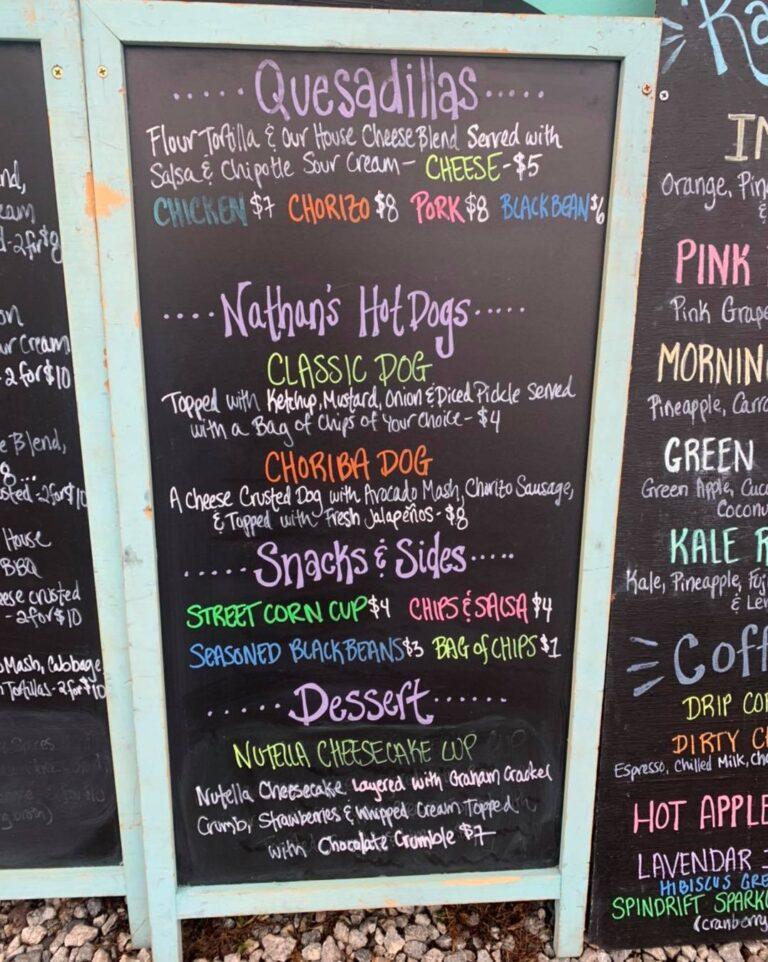 Quesadillas
Flour Tortilla & Our House Cheese Blend Served with
Salsa & Chipotle Sour Cream - CHEESE - $5
CHICKEN $7 CHORIZO $8 PORK $8 BLACK BEAN $6
Nathan's Hot Dogs
CLASSIC DOG
Topped with Ketchup, Mustard, Onion & Diced Pickle Served
with a Bag of Chips of Your Choice - $4
CHORIBA DOG
A Cheese Crusted Dog with Avocado Mash, Chorizo Sausage,
& Topped with Fresh Jalapeños - $8
Snacks & Sides
STREET CORN CUP $4 CHIPS & SALSA $4
SEASONED BLACK BEANS $3 BAG of CHIPS $1
Dessert
NUTELLA CHEESECAKE CUP
Nutella Cheesecake Layered with Graham Cracker
Crumb, Strawberries & Whipped Cream Topped
with Chocolate Crumble $7
nd,
eam
- 2 for $8
on
ur Cream
- 2 for $10
e Blend,
8...
usted - 2 for $10
House
BBQ
eese crusted
- 2 for $10
Mash, Cabbage
Tortillas - 2 for $10
Ka
IN
Orange, Pin
&
PINK
Pink Grape
MORNIN
Pineapple, Carro
GREEN
Green Apple, Cuc
Coconu
KALE R
Kale, Pineapple, Fuji
& Le
Coff
DRIP CO
DIRTY C
Espresso, Chilled Milk, Cho
HOT APPLE
LAVENDAR
HIBISCUS GRE
SPINDRIFT SPARK
(cranberry